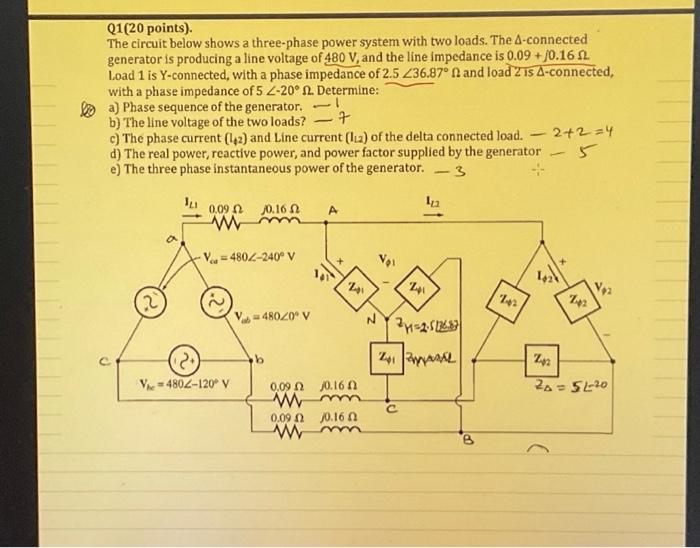 Q1(20 points).
The circuit below shows a three-phase power system with two loads. The Δ-connected
generator is producing a line voltage of 480 V, and the line impedance is 0.09 + j0.16 Ω.
Load 1 is Y-connected, with a phase impedance of 2.5 ∠36.87° Ω and load 2 is Δ-connected,
with a phase impedance of 5 ∠-20° Ω. Determine:
a) Phase sequence of the generator. — 1
b) The line voltage of the two loads? — 7
c) The phase current (Iϕ2) and Line current (IL2) of the delta connected load. — 2+2=4
d) The real power, reactive power, and power factor supplied by the generator — 5
e) The three phase instantaneous power of the generator. — 3
IL1 0.09 Ω j0.16 Ω A IL2
a
Vca = 480∠-240° V Iϕ1 + Vϕ1 - Iϕ2 +
Zϕ1 Zϕ1 Zϕ2 Zϕ2 Vϕ2
Vab = 480∠0° V N ZY1=2.5∠36.87 -
c b Zϕ1 Zϕ2
Vbc = 480∠-120° V 0.09 Ω j0.16 Ω ZΔ = 5∠-20
C
0.09 Ω j0.16 Ω
B